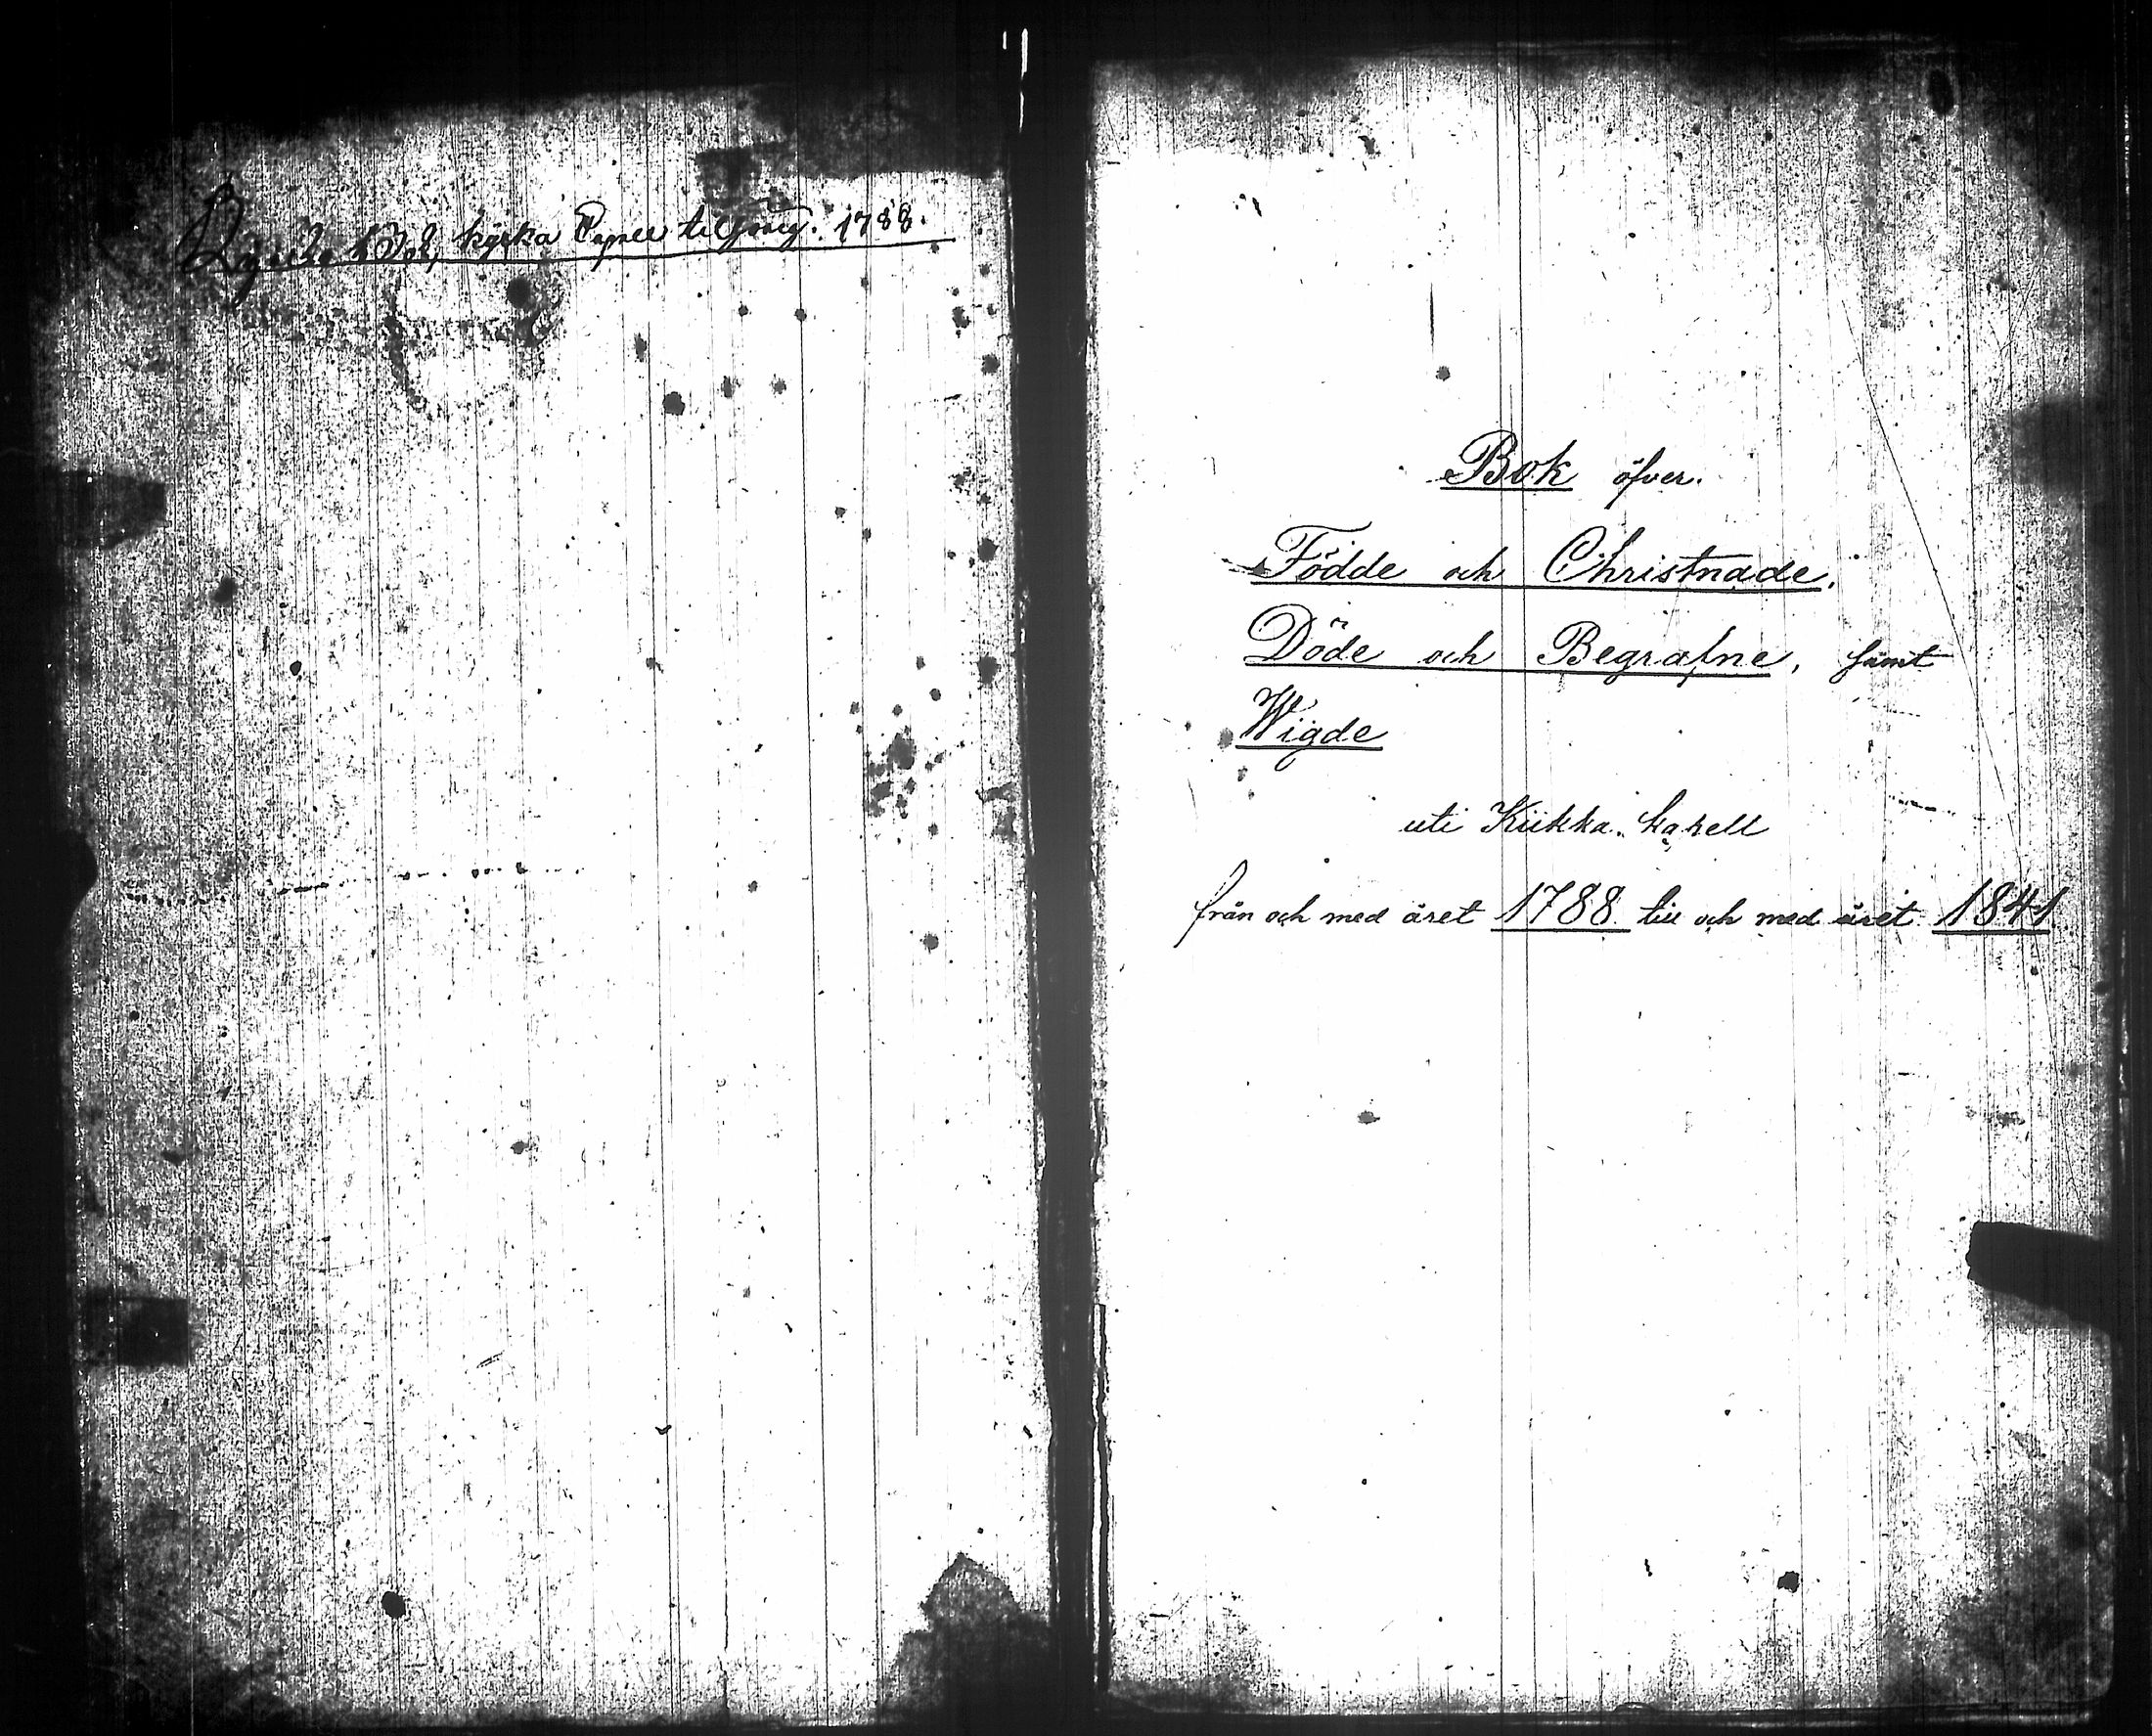 Bok, kyrka 1788.
Bok öfver.
Födde och Christnade.
Döde och Begrafne, samt
Wigde
uti Kiikka kapell
från och med året 1788 till och med året 1841